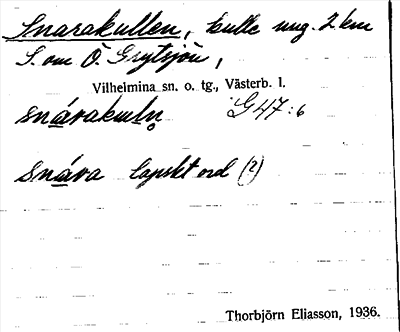 Snarakullen, kulle ung. 2 km
S. om Ö. Grytsjön,
Vilhelmina sn. o. tg., Västerb. l.
snárakuln̥ G47:6
snára lapskt ord (?)
Thorbjörn Eliasson, 1936.